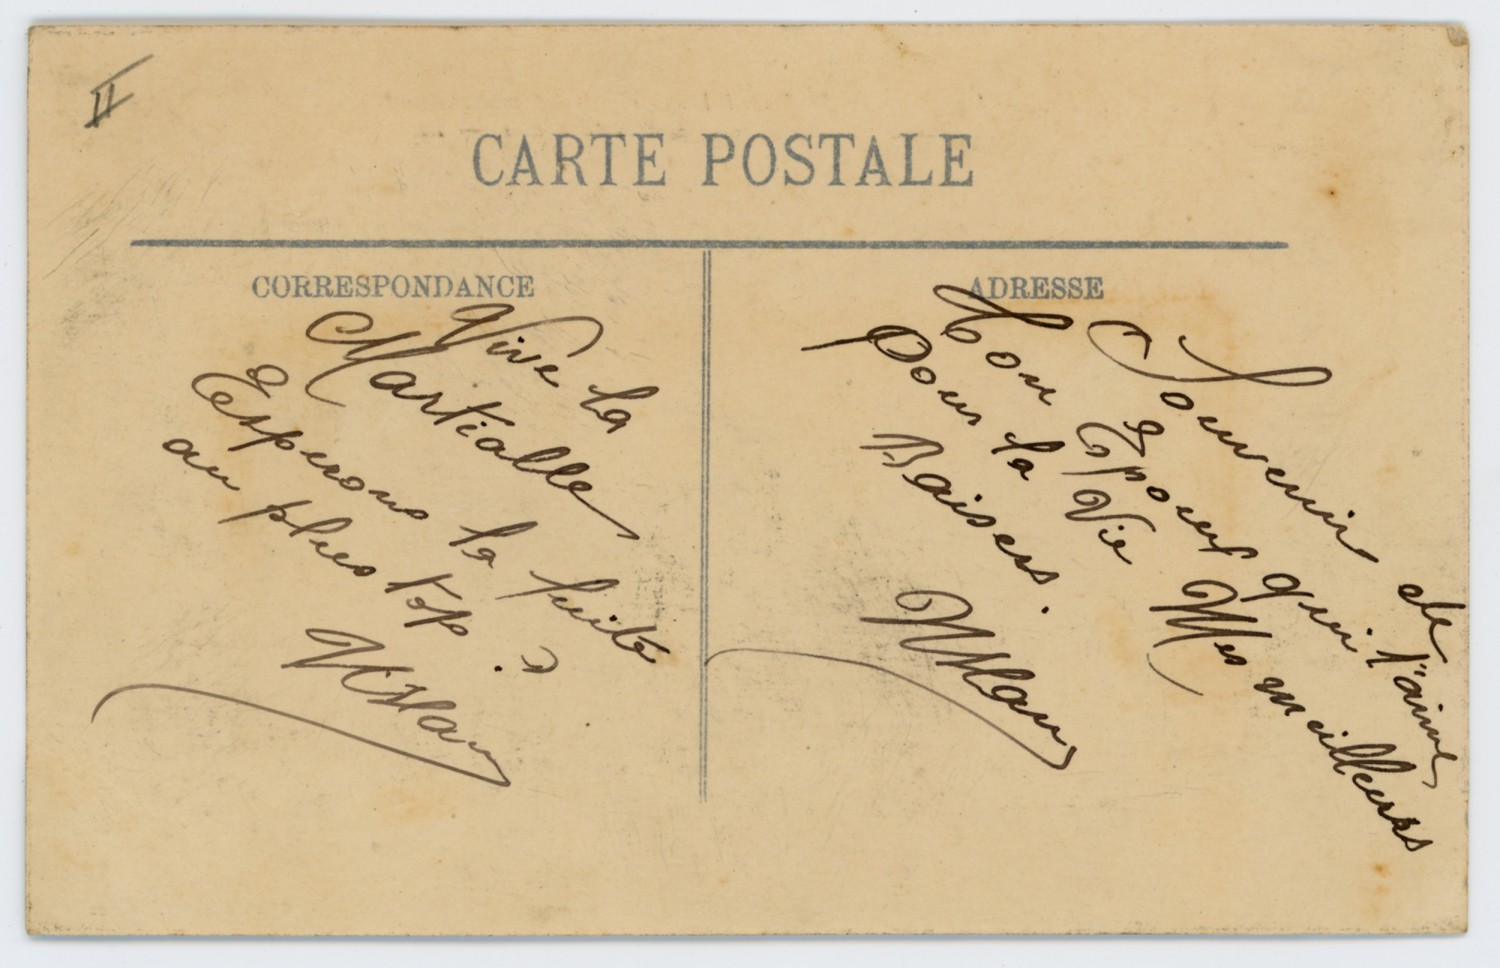 II
CARTE POSTALE
CORRESPONDANCE
Vive la
Martialle
Esperons la suite
au plus top.?
ADRESSE
Souvenir de
Ton Epoux qui t'aime
Pour la Vie Mes meilleurs
Baisers.